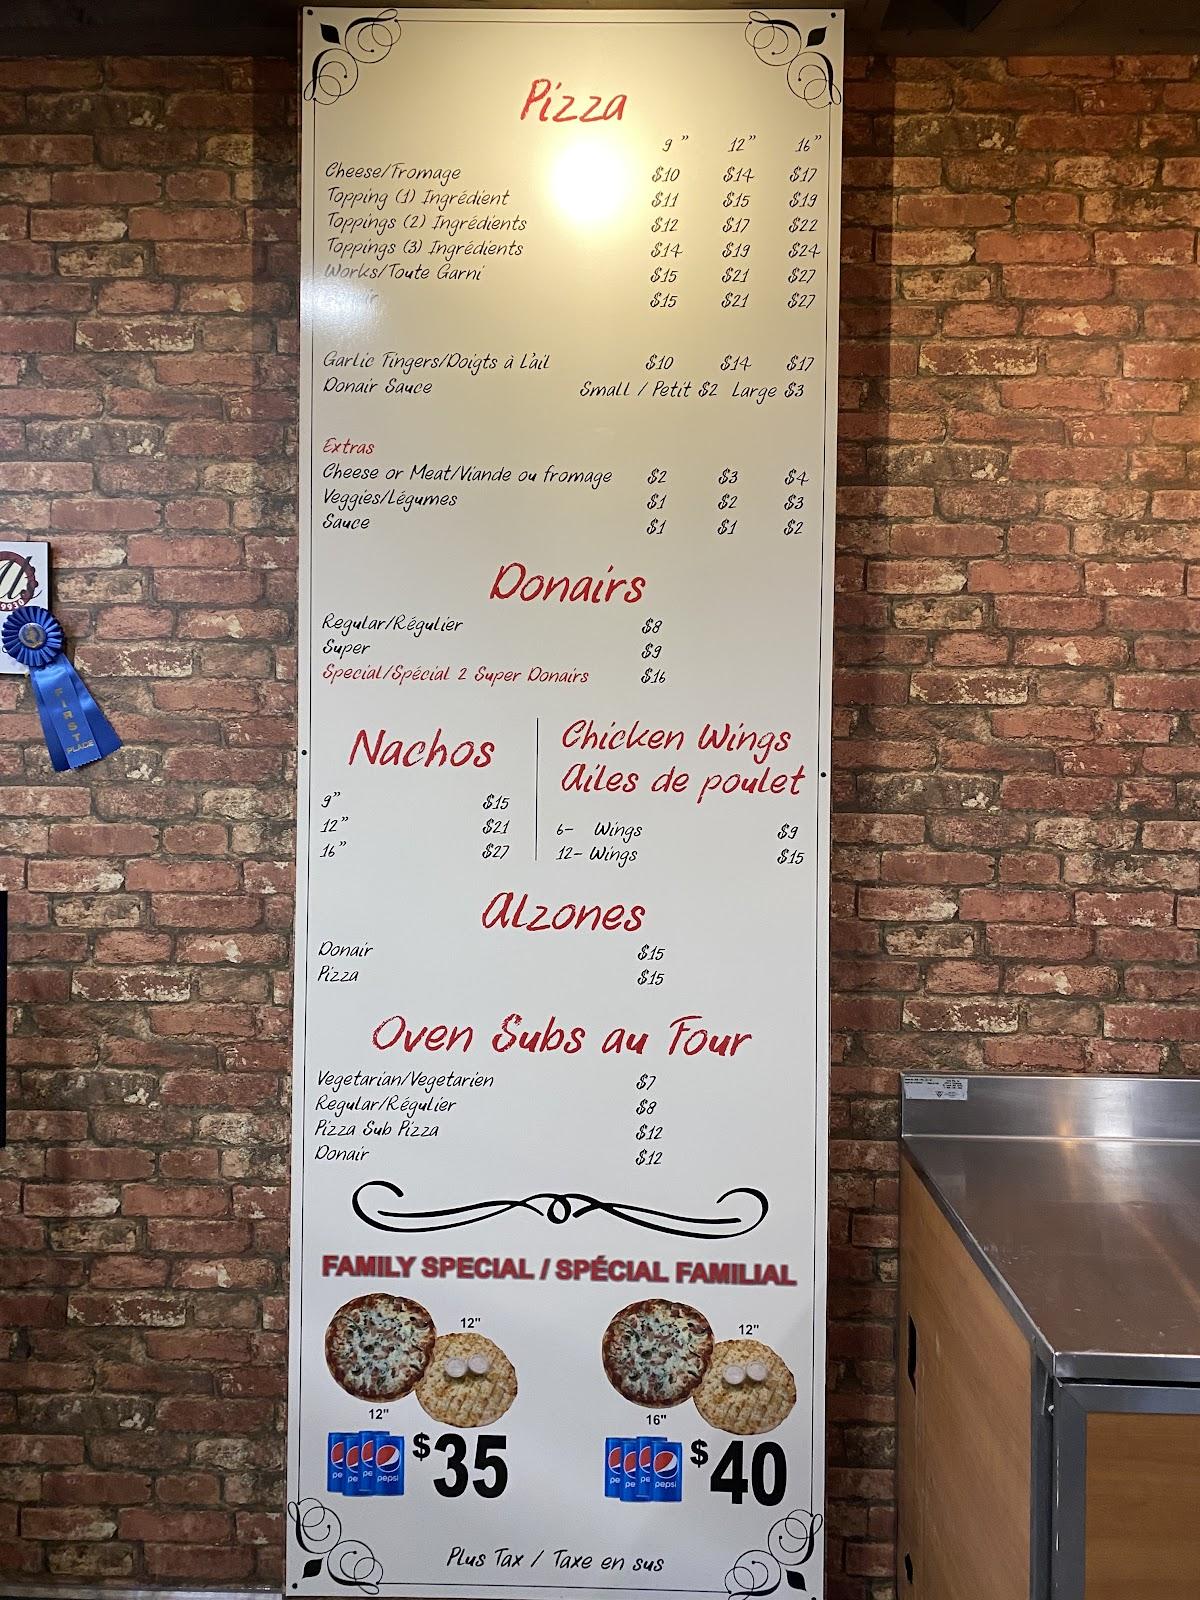 Pizza
9" 12" 16"
Cheese/Fromage $10 $14 $17
Topping (1) Ingrédient $11 $15 $19
Toppings (2) Ingrédients $12 $17 $22
Toppings (3) Ingrédients $14 $19 $24
Works/Toute Garni $15 $21 $27
$15 $21 $27
Garlic Fingers/Doigts à L'ail $10 $14 $17
Donair Sauce Small / Petit $2 Large $3
Extras
Cheese or Meat/Viande ou fromage $2 $3 $4
Veggies/Légumes $1 $2 $3
Sauce $1 $1 $2
Donairs
Regular/Régulier $8
Super $9
Special/Spécial 2 Super Donairs $16
Nachos
9" $15
12" $21
16" $27
Chicken Wings
Ailes de poulet
6- Wings $9
12- Wings $15
Alzones
Donair $15
Pizza $15
Oven Subs au Four
Vegetarian/Vegetarien $7
Regular/Régulier $8
Pizza Sub Pizza $12
Donair $12
FAMILY SPECIAL / SPÉCIAL FAMILIAL
12"
12"
pepsi
$35
12"
16"
pepsi
$40
Plus Tax / Taxe en sus
FIRST
PLACE
9930